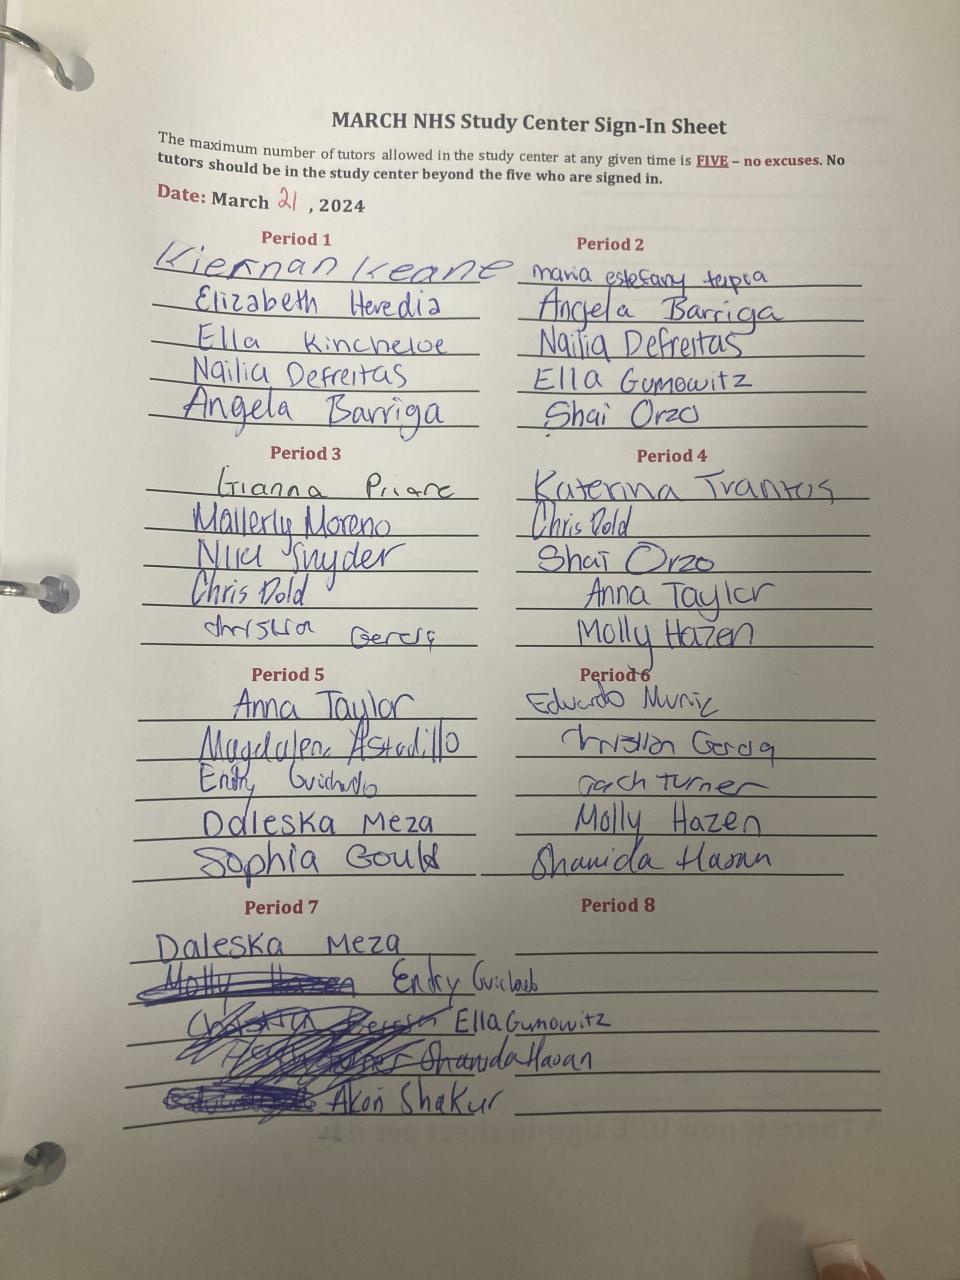 MARCH NHS Study Center Sign-In Sheet
The maximum number of tutors allowed in the study center at any given time is FIVE – no excuses. No
tutors should be in the study center beyond the five who are signed in.
Date: March 21, 2024
Period 1
Kiernan Keane
Elizabeth Heredia
Ella Kincheloe
Nailia Defreitas
Angela Barriga
Period 2
maria estefany
Angela Barriga
Nailia Defreitas
Ella Gumowitz
Shai Orzo
Period 3
Gianna
Mallerly Moreno
Niki Snyder
Chris Dold
Christian
Period 4
Katerina Trantos
Chris Dold
Shai Orzo
Anna Taylor
Molly Hazen
Period 5
Anna Taylor
Magdalena Astudillo
Entry Guichardo
Daleska Meza
Sophia Gould
Period 6
Eduardo Muniz
Christian
Zach Turner
Molly Hazen
Shanida Hasan
Period 7
Daleska Meza
Molly Hazen Entry
Ella Gumowitz
Shanida Hasan
Akon Shakur
Period 8